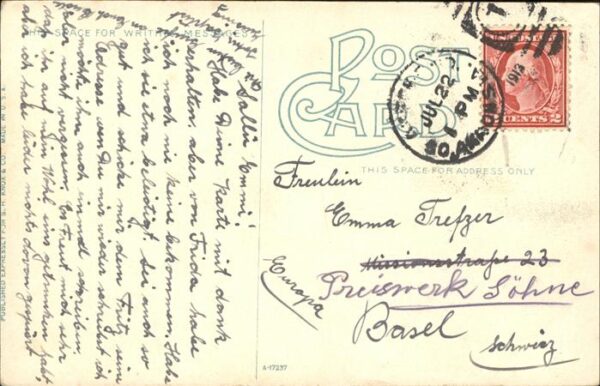 THIS SPACE FOR WRITTEN MESSAGES
POST CARD
THIS SPACE FOR ADDRESS ONLY
JUL 22
1 PM
1913
CENTS 2
Salü Emmi!
Habe Deine Karte mit dank
erhalten, aber von Frida habe
ich noch nie keine bekommen, Habe
ich sie etwa beleidigt, sei auch so
gut und schicke mir dem Fritz seine
Adresse wen Du mir wieder schreibst ich
möchte ihm auch einmal schreiben,
aber nicht vergessen. Es freut mich sehr
das ihr auf mein Wohl eins getrunken habt
aber ich habe leider nichts davon gespürt
Freulein
Emma Trefzer
Missionsstraße 23
Preiswerk Söhne
Basel
Schweiz
(Europa)
A-17237
PUBLISHED EXPRESSLY FOR S. H. KNOX & CO. MADE IN U.S.A.